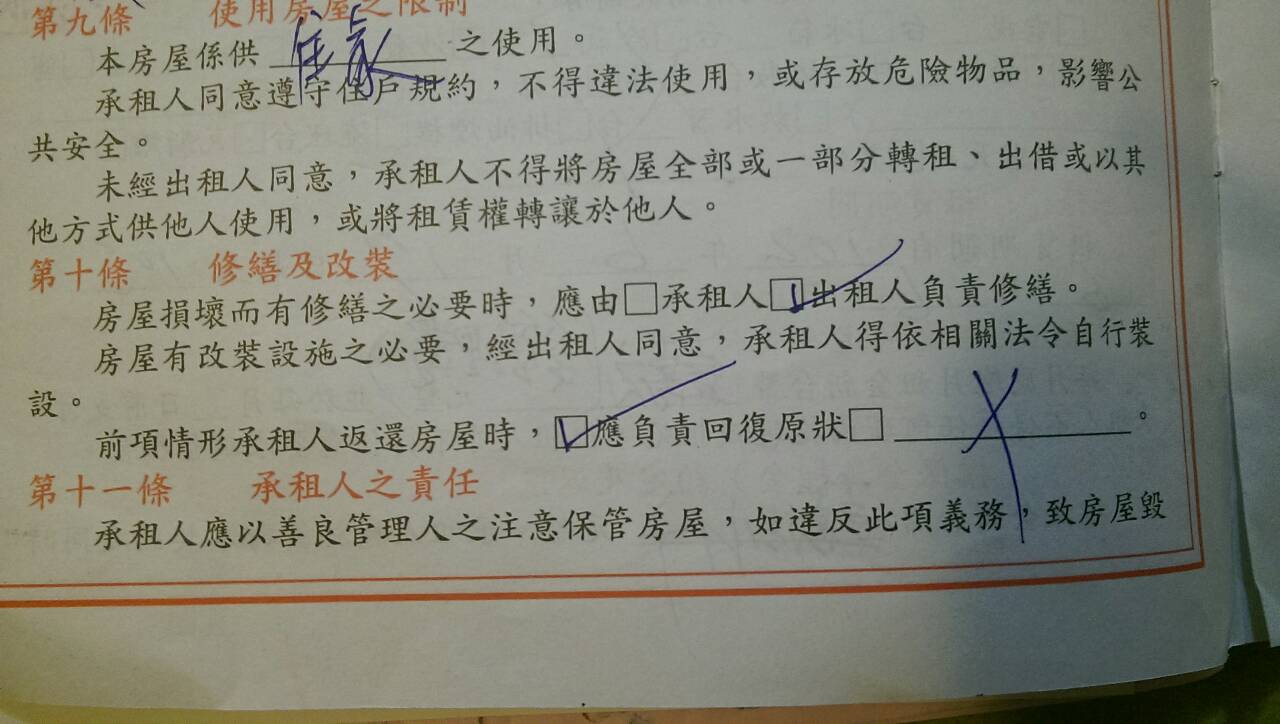 第九條 使用房屋之限制
本房屋係供 住家 之使用。
承租人同意遵守住戶規約，不得違法使用，或存放危險物品，影響公
共安全。
未經出租人同意，承租人不得將房屋全部或一部分轉租、出借或以其
他方式供他人使用，或將租賃權轉讓於他人。
第十條 修繕及改裝
房屋損壞而有修繕之必要時，應由□承租人☑出租人負責修繕。
房屋有改裝設施之必要，經出租人同意，承租人得依相關法令自行裝
設。
前項情形承租人返還房屋時，☑應負責回復原狀□ X 。
第十一條 承租人之責任
承租人應以善良管理人之注意保管房屋，如違反此項義務，致房屋毀